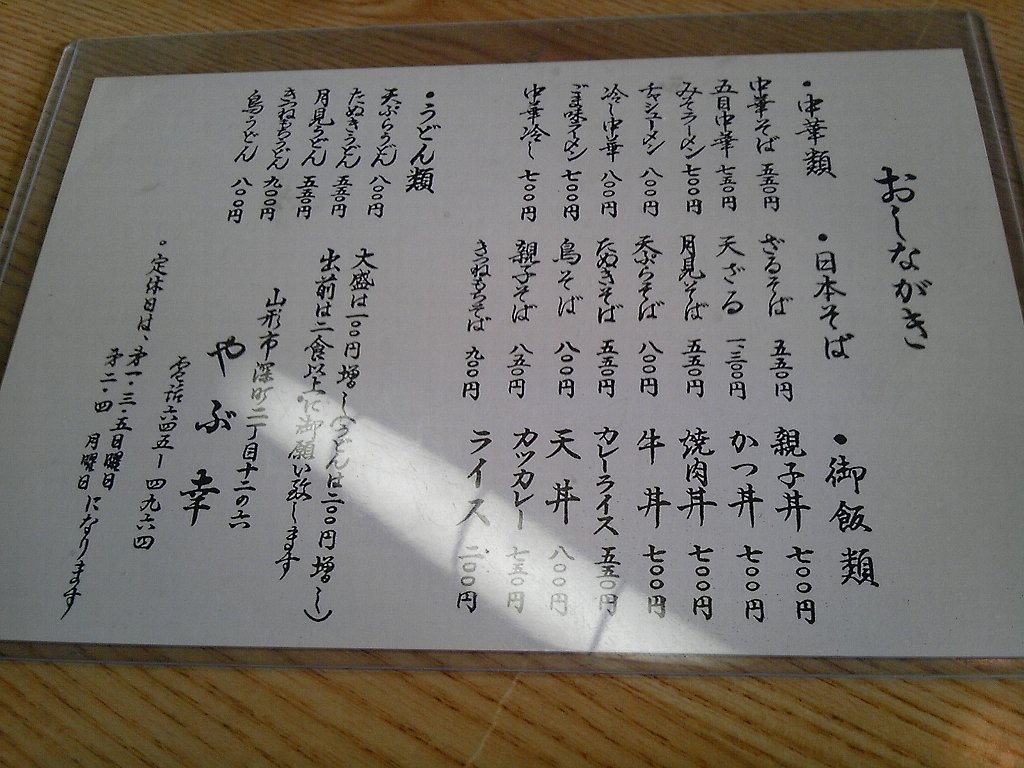 おしながき
・中華類
中華そば 五五〇円
五目中華 七五〇円
みそラーメン 七〇〇円
チャシューメン 八〇〇円
冷し中華 八〇〇円
ごま味ラーメン 七〇〇円
中華冷し 七〇〇円
・日本そば
ざるそば 五五〇円
天ざる 一、三〇〇円
月見そば 五五〇円
天ぷらそば 八〇〇円
たぬきそば 五五〇円
鳥そば 八〇〇円
親子そば 八五〇円
きつねもちそば 九〇〇円
・御飯類
親子丼 七〇〇円
かつ丼 七〇〇円
焼肉丼 七〇〇円
牛丼 七〇〇円
カレーライス 五五〇円
天丼 八〇〇円
カツカレー 七五〇円
ライス 二〇〇円
・うどん類
天ぷらうどん 八〇〇円
たぬきうどん 五五〇円
月見うどん 五五〇円
きつねもちうどん 九〇〇円
鳥うどん 八〇〇円
大盛は一〇〇円増し(うどんは二〇〇円増し)
出前は二食以上に御願い致します
山形市深町二丁目十二の六
やぶ幸
電話六四五ー四九六四
・定休日は、第一・三・五日曜日
第二・四 月曜日になります